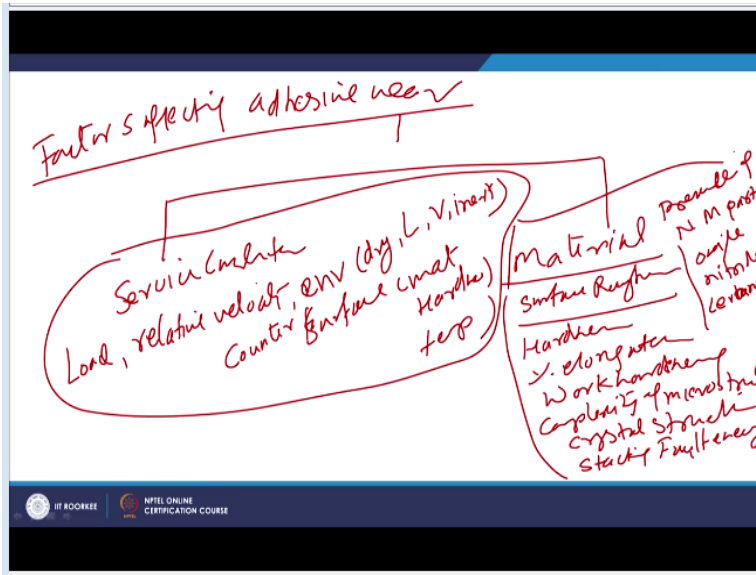 Factors affecting adhesive wear
Service Condition
Load, relative velocity, env (dry, L, V, inert)
Counter surface (mat
Hardness)
temp
Material
Surface Roughness
Hardness
% elongation
Work hardening
Complexity of microstru
Crystal Structure
Stacking Fault energy
Presence of
N M part
oxide
nitride
carban
IIT ROORKEE
NPTEL ONLINE
CERTIFICATION COURSE